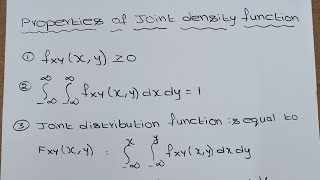 Properties of Joint density function
① fxy(x,y) ≥ 0
② ∫_-∞^∞ ∫_-∞^∞ fxy(x,y) dx dy = 1
③ Joint distribution function is equal to
Fxy(x,y) = ∫_-∞^x ∫_-∞^y fxy(x,y) dx dy